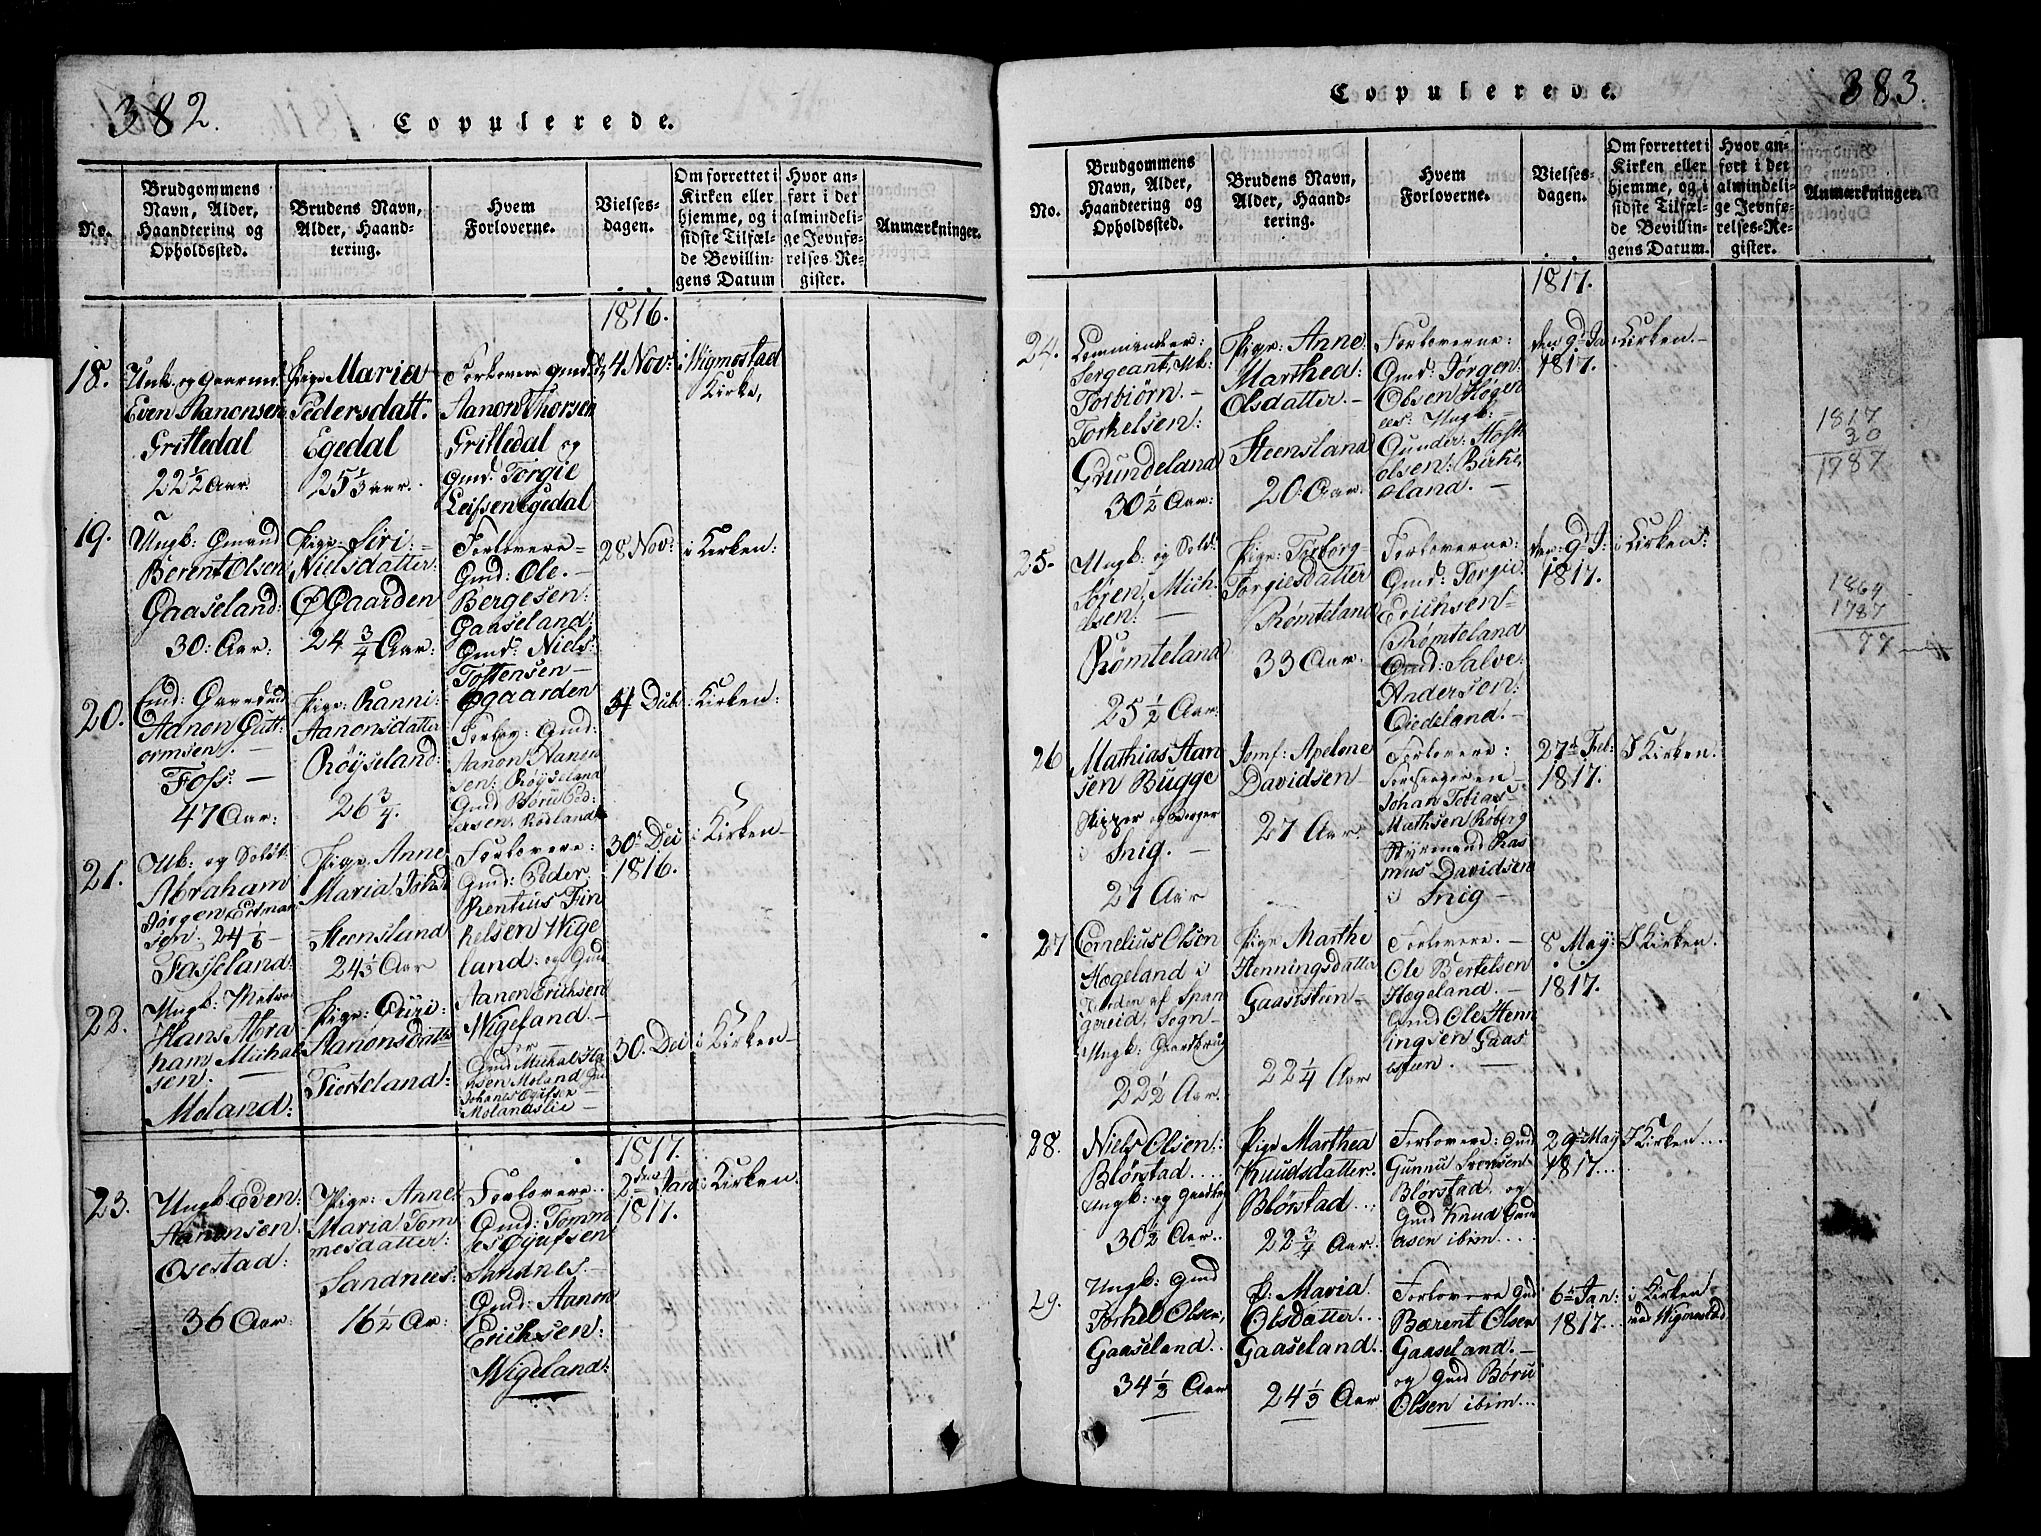 382.
Copulerede.
No.
Brudgommens
Navn, Alder,
Haandtering og
Opholdssted.
Brudens Navn,
Alder, Haand-
tering.
Hvem
Forloverne.
Vielses-
dagen.
Om forrettet i
Kirken eller
hjemme, og i
sidste Tilfæl-
de Bevillin-
gens Datum
Hvor an-
ført i det
almindeli-
ge Jevnfø-
relses-Re-
gister.
Anmærkninger.
1816.
18.
Even Aanonsen
Grittedal
22½ Aar.
Pige Maria
Pedersdatt.
Egedal
25⅓ aar.
Forlovere gmd:
Aanon Thorsen
Grittedal og
Gmd: Torgie
Leifsen Egedal
4 Nov:
i Wigmostad
Kirke,
19.
Ungk: Gmand
Berent Olsen
Gaaseland:
30: Aar:
Pige: Siri
Nielsdatter:
ØGaarden
24 ¾ Aar:
Forlovere
Gmd: Ole.
Bergesen:
Gaaseland:
Gmd: Niels:
Tostensen
Øgaarden
28 Nov:
i Kirken:
20.
Aanon Gutt-
ormsen.
Foss:
47 Aar:
Pige: Ranni:
Aanonsdatter
Røyseland:
26 ¾.
Forlov: Gmd:
Aanon Aanon
sen: Røyseland
Gmd Børu Ped:
ersen: Rödland
4 Dec
i Kirken:
21.
Uk: og Soldt:
Abraham
Jørgen Ertman
sen: 24 ⅙
Fasseland:
Pige: Anne
Maria Joh
Steensland
24⅓ Aar
Forlovere:
Gmd: Peder
Rentius Fin
kelsen Wige
land: og Gmd
Aanon Erichsen
Wigeland.
30te Dec
1816.
i Kirken
22.
Hans Abra
ham Michal
sen.
Moland:
Pige: Guri:
Aanonsdatter
Fiorteland:
Gmd Michal Ha
nsen Moland
Molandslie
30. Dec
i Kirken
1817.
23.
Ungk Even:
Aanonsen:
Osestad:
36 Aar:
Pige: Anne
Maria Tom
mesdatter:
Sandnees:
16½ Ar:
Forlovere
Gmd: Tomm
es Gjufsen
Sandnes.
Gmd: Aanon
Erichsen:
Wigeland:
2den Jan
1817.
i Kirken:
383.
Copulerede.
No.
Brudgommens
Navn, Alder,
Haandtering og
Opholdssted.
Brudens Navn,
Alder, Haand-
tering.
Hvem
Forloverne.
Vielses-
dagen.
Om forrettet i
Kirken eller
hjemme, og i
sidste Tilfæl-
de Bevillin-
gens Datum.
Hvor an-
ført i det
almindeli-
ge Jevnfø-
relses-Re-
gister.
Anmærkninger.
1817.
24.
Commandeer:
Sergeant, Uk:
Torbiörn.
Torkelsen:
Grundeland
30½ Aar:
Pige: Anne
Marthea:
Olsdatter.
Steensland
20: Aar.
Forloverne:
Gmd: Jørgen:
Olsen Høge
Gunder:
olsen: Birke
oland.
den 9d Ja
1817.
i Kirken.
1817
30
1787
25.
Ungk: og Sold:
Søren, Mich-
elsen:
Römteland
25½ Aar:
Pige: Torborg
Torgiesdatter
Römteland
33 Aar.
Forloverne:
Gmd: Torgie.
Erichsen
Römteland
Gmd: Salve:
Andersen:
Oiedeland.
den: 9d J:
1817.
i Kirken:
1864
1787
77
26
Mathias Aan
sen Bugge
Skipper og Borger
i Snig.
27 Aar
Jomf: Apelone
Davidsen
27 Aar
Forlovere:
Johan Tobias
Styrmand Ras
mus Davidsen
i Snig
27d Feb:
1817.
I Kirken.
27
Cornelius Olsen
Hogeland i
af Span
gereid, Sogn
Ungk: Gaardbrug
22½ Aar.
Pige Marthe
Henningsdatter
Gaasesteen
22¼ Aar
Forlovere.
Ole Bertelsen
Hægeland.
Gmd Ole Henn
ingsen Gaas
esteen.
8 May:
1817.
I Kirken.
28.
Niels Olsen:
Blørstad....
Ungk: og Gaardbr
30½ Aar..
Pige Marthea
Knudsdatter.
Blørstad..:
22¾ Aar..
Forlovere: Gmd
Gunnu Svensen
Blørstad, og
Gmd Knud Gund
ersen ibim....
29de May
1817...
I Kirken...
29.
Ungk: Gmd
Torkel Olsen,
Gaaseland..
34⅓ Aar
P: Maria
Olsdatter...
Gaaseland.
24⅓ Aar
Forlovere Gmd
Bærent Olsen
Gaaseland.
og Gmd Børu
Olsen ibim...
6te Jan:
1817...
i Kirken
ved Wigmostad